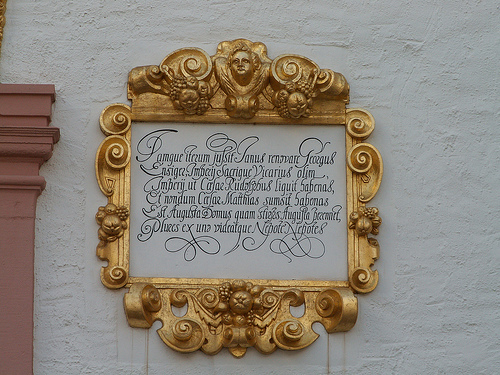 Iamque iterum jussit Janus renovari Georgus
Ensiger Imperij Sacrique Vicarius olim
Imperij ut Caesar Rudolphus liquit habenas,
Et nondum Caesar Matthias sumsit habenas
Est Augusta Domus quam stirps Augusta perennet,
ex uno videatque Nepote Nepotes